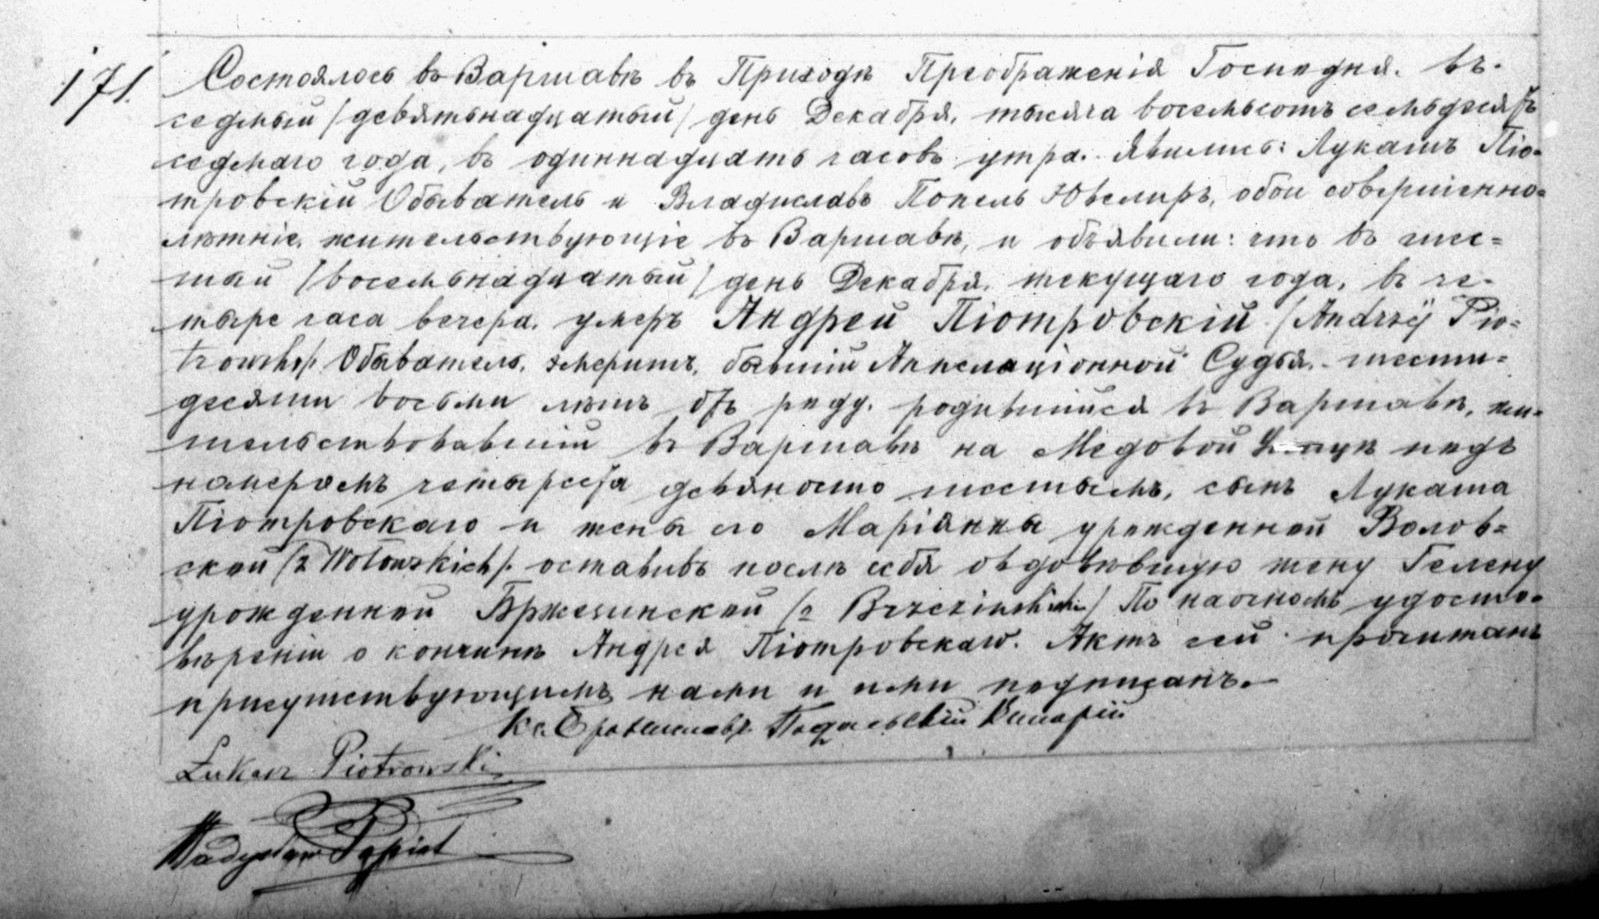 171.
Состоялось въ Варшавѣ въ Приходѣ Преображенія Господня. въ
седмый /девятьнадцатый/ день Декабря, тысяча восемьсотъ семьдесятъ
седмаго года, въ одиннадцать часовъ утра. Явились: Лукашъ Піо-
тровскій Обыватель и Владиславъ Попель Ювелиръ, обои совершенно-
лѣтніе, жительствующіе въ Варшавѣ, и объявили: что въ шес-
тый /восемьнадцатый/ день Декабря, текущаго года, въ че-
тыре часа вечера, умеръ Андрей Піотровскій /Andrzéj Pio-
trowski/ Обыватель, эмеритъ, бывшій Аппелаціонной Судья, шести-
десяти восьми лѣтъ отъ роду, родившійся въ Варшавѣ, жи-
тельствовавшій въ Варшавѣ на Медовой Улицѣ подъ
номеромъ четыреста девяносто шестымъ, сынъ Лукаша
Піотровскаго и жены его Маріянны урожденной Волов-
ской /z Wołowskich/. оставивъ послѣ себя овдовѣвшую жену Гелену
урожденной Бржезинской /z Brzezińskich/ По наочномъ удосто-
вѣреніи о кончинѣ Андрея Піотровскаго. Актъ сей прочитанъ
присутствующимъ нами и ими подписанъ.
Кс. Брониславъ Подальскій Викарій
Łukasz Piotrowski
Władysław Popiel